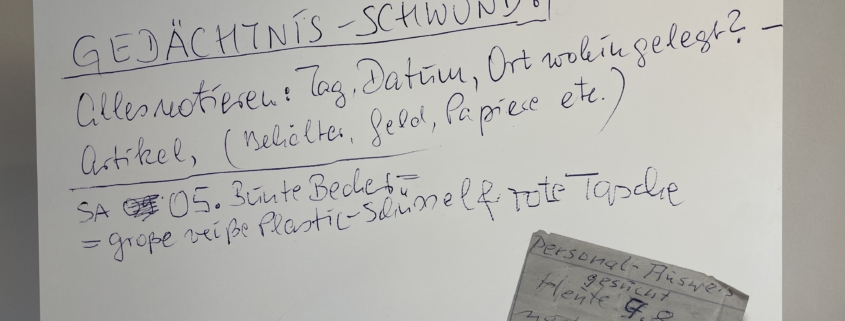 GEDÄCHTNIS-SCHWUND!
Alles notieren: Tag, Datum, Ort wohin gelegt? –
Artikel, (Behälter, Geld, Papiere etc.)
SA 05. Bunte Becher =
= große weiße Plastic-Schüssel & rote Tasche
Personal-Ausweis
gesucht
Heute 9.8